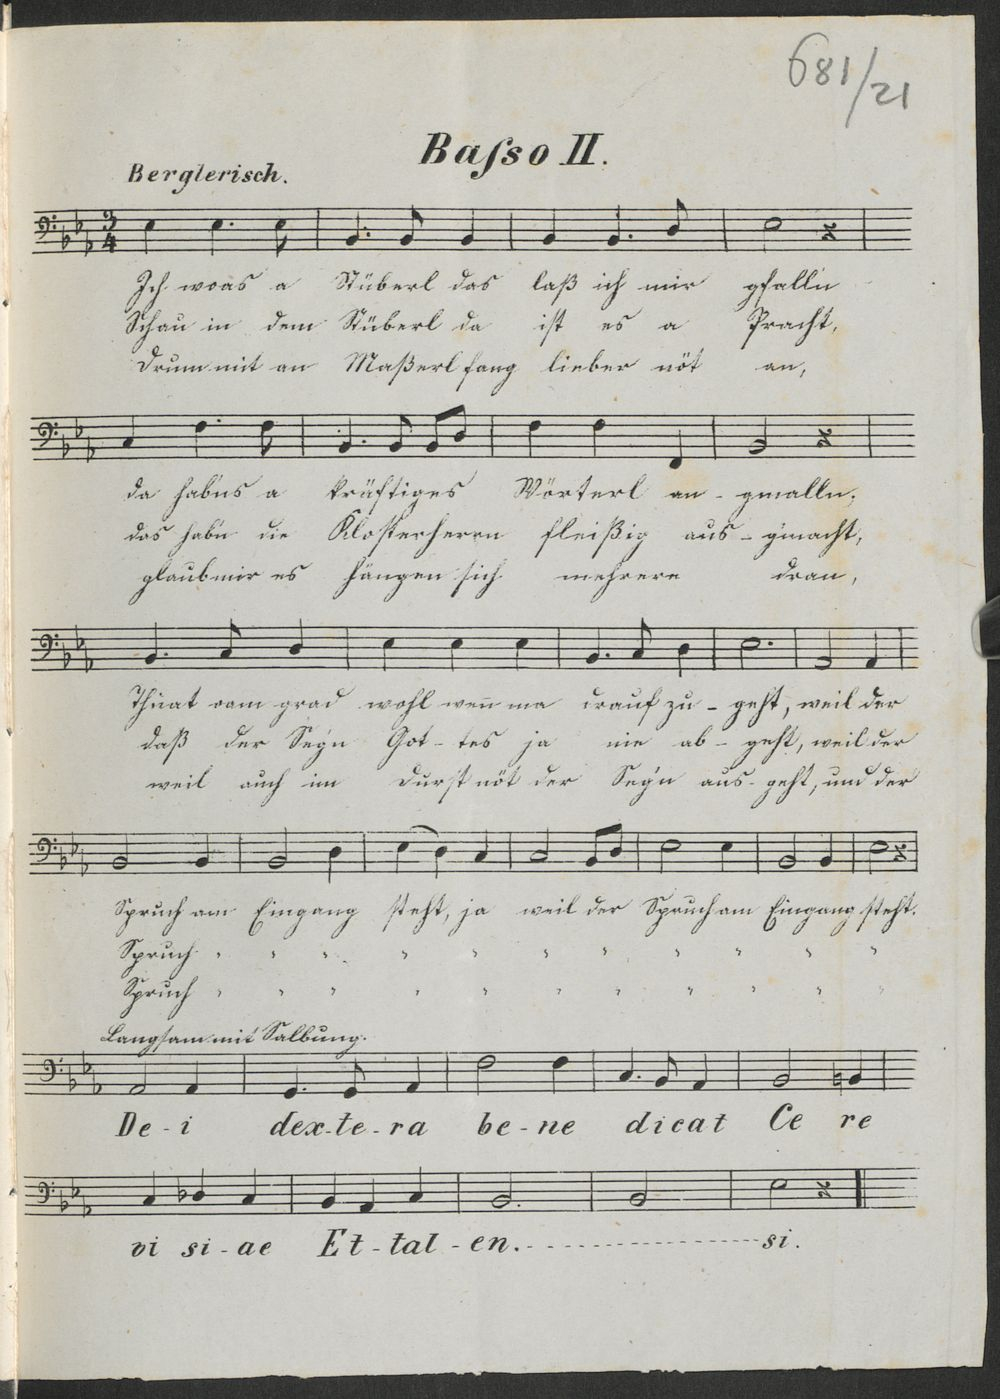 681/21
Baſso II.
Berglerisch.
3/4
Ich woas a Stüberl das laß ich mir gfalln
Schau in dem Stüberl da ist es a Pracht,
Drum mit an Maßerl fang lieber nöt an,
da hab'ns a kräftiges Wörterl an - gmalln;
das hab'n die Klosterherrn fleißig aus - g'macht,
glaub mir es hängen sich mehrere dran,
Thuat oam grad wohl wen̄ ma drauf zu - geht, weil der
daß der Seg'n Got - tes ja nie ab - geht, weil der
weil auch im Durst nöt der Seg'n aus - geht, und der
Spruch am Eingang steht, ja weil der Spruch am Eingang steht.
Spruch " " " " " " " " " " "
Spruch " " " " " " " " " " "
Langsam mit Salbung.
De - i dex - te - ra be - ne dicat Ce re
vi si - ae Et - tal - en. - - - - - - - - - - si.